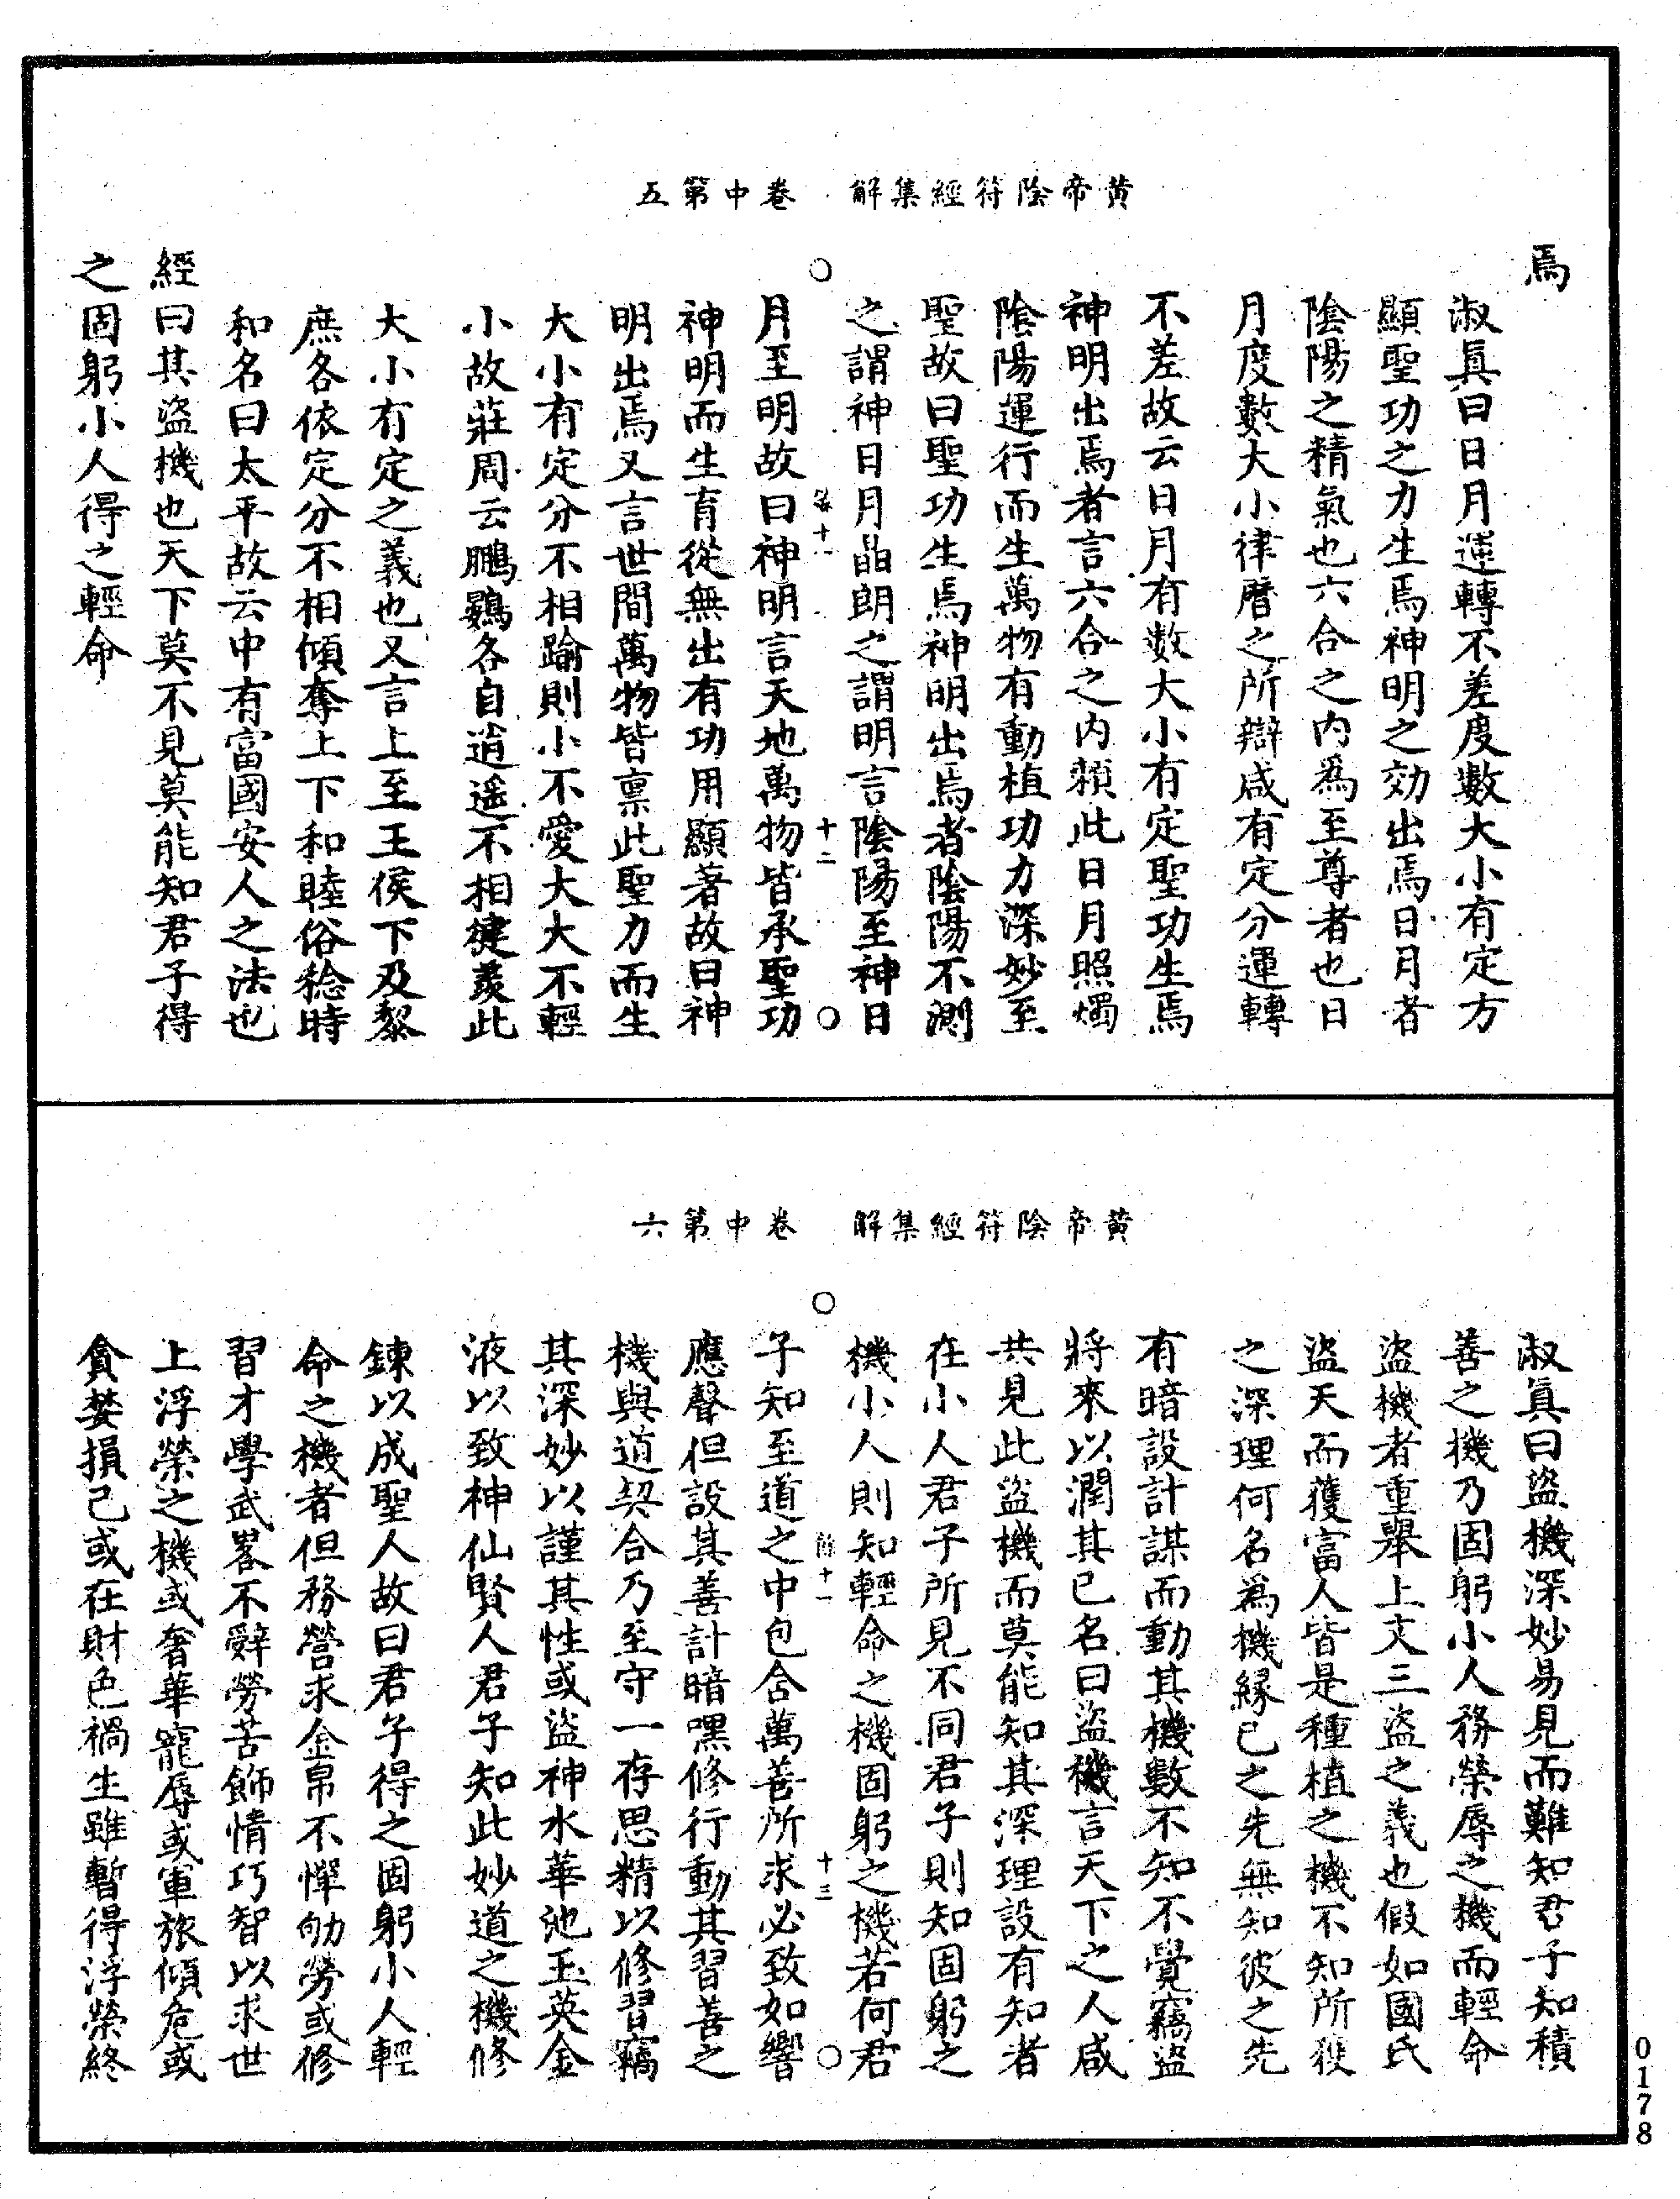 黄帝陰符經集解　卷中第五
焉
淑眞曰日月運轉不差度數大小有定方
顯聖功之力生焉神明之効出焉日月者
陰陽之精氣也六合之内爲至尊者也日
月度數大小律曆之所辯咸有定分運轉
不差故云日月有數大小有定聖功生焉
神明出焉者言六合之内頼此日月照燭
陰陽運行而生萬物有動植功力深妙至
聖故曰聖功生焉神明出焉者陰陽不測
之謂神日月晶朗之謂明言陰陽至神日
十二
月至明故曰神明言天地萬物皆承聖功
神明而生育從無出有功用顯著故曰神
明出焉又言世間萬物皆稟此聖力而生
大小有定分不相踰則小不愛大大不輕
小故莊周云鵬鷃各自逍遥不相健羨此
大小有定之義也又言上至王侯下及黎
庶各依定分不相傾奪上下和睦俗稔時
和名曰太平故云中有富國安人之法也
經曰其盜機也天下莫不見莫能知君子得
之固躬小人得之輕命
黄帝陰符經集解　卷中第六
淑眞曰盜機深妙易見而難知君子知積
善之機乃固躬小人務榮辱之機而輕命
盜機者重舉上文三盜之義也假如國氏
盜天而獲富人皆是種植之機不知所獲
之深理何名爲機緣己之先無知彼之先
有暗設計謀而動其機數不知不覺竊盜
將來以潤其己名曰盜機言天下之人咸
共見此盜機而莫能知其深理設有知者
在小人君子所見不同君子則知固躬之
機小人則知輕命之機固躬之機若何君
十三
子知至道之中包含萬善所求必致如響
應聲但設其善計暗嘿修行動其習善之
機與道契合乃至守一存思精以修習竊
其深妙以謹其性或盜神水華池玉英金
液以致神仙賢人君子知此妙道之機修
鍊以成聖人故曰君子得之固躬小人輕
命之機者但務營求金帛不憚劬勞或修
習才學武畧不辤勞苦飾情巧智以求世
上浮榮之機或奢華寵辱或軍旅傾危或
貪婪損己或在財色禍生雖暫得浮榮終
0178